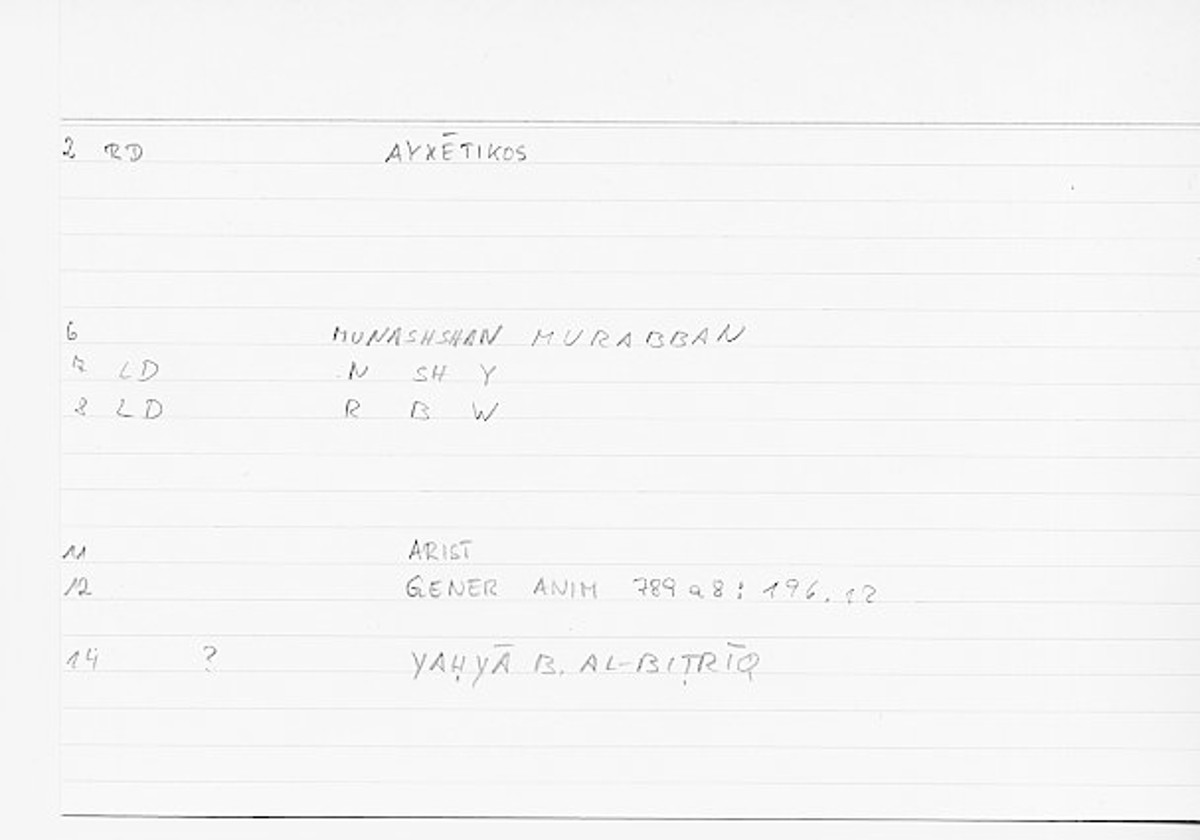 2 RD AYXĒTIKOS
6 MUNASHSHAN MURABBAN
7 LD N SH Y
8 LD R B W
11 ARIST
12 GENER ANIM 789 a 8 : 196.12
14 ? YAḤYĀ B. AL-BIṬRĪQ